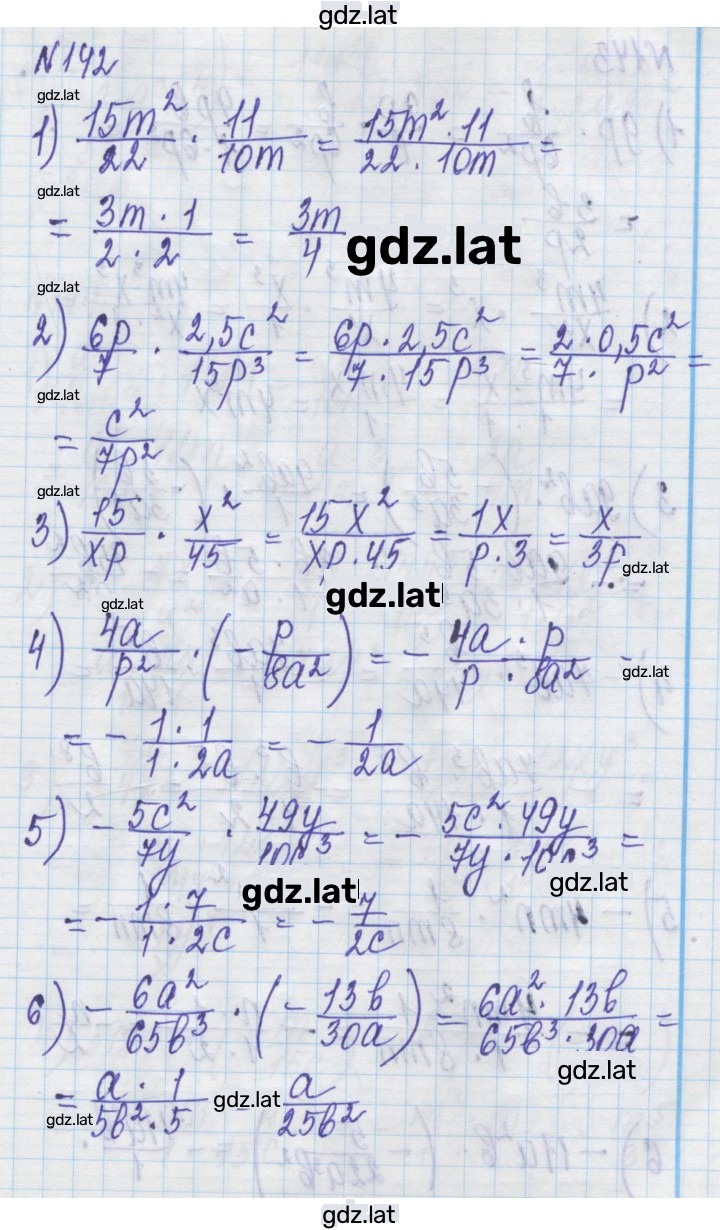 gdz.lat
№142
gdz.lat
1) 15m²/22 · 11/10m = 15m² · 11/22 · 10m =
gdz.lat
= 3m · 1/2 · 2 = 3m/4 gdz.lat
gdz.lat
2) 6p/7 · 2,5c²/15p³ = 6p · 2,5c²/7 · 15p³ = 2 · 0,5c²/7 · p² =
gdz.lat
= c²/7p²
gdz.lat
3) 15/xp · x²/45 = 15x²/xp · 45 = 1x/p · 3 = x/3p gdz.lat
gdz.lat
gdz.lat
4) 4a/p² · (- p/8a²) = - 4a · p/p · 8a² gdz.lat
= - 1 · 1/1 · 2a = - 1/2a
5) - 5c²/7y · 49y/10c³ = - 5c² · 49y/7y · 10c³ =
gdz.lat gdz.lat
= - 1 · 7/1 · 2c = - 7/2c
6) - 6a²/65b³ · (- 13b/30a) = 6a² · 13b/65b³ · 30a =
gdz.lat
gdz.lat = a · 1/5b² · 5 gdz.lat a/25b²
gdz.lat